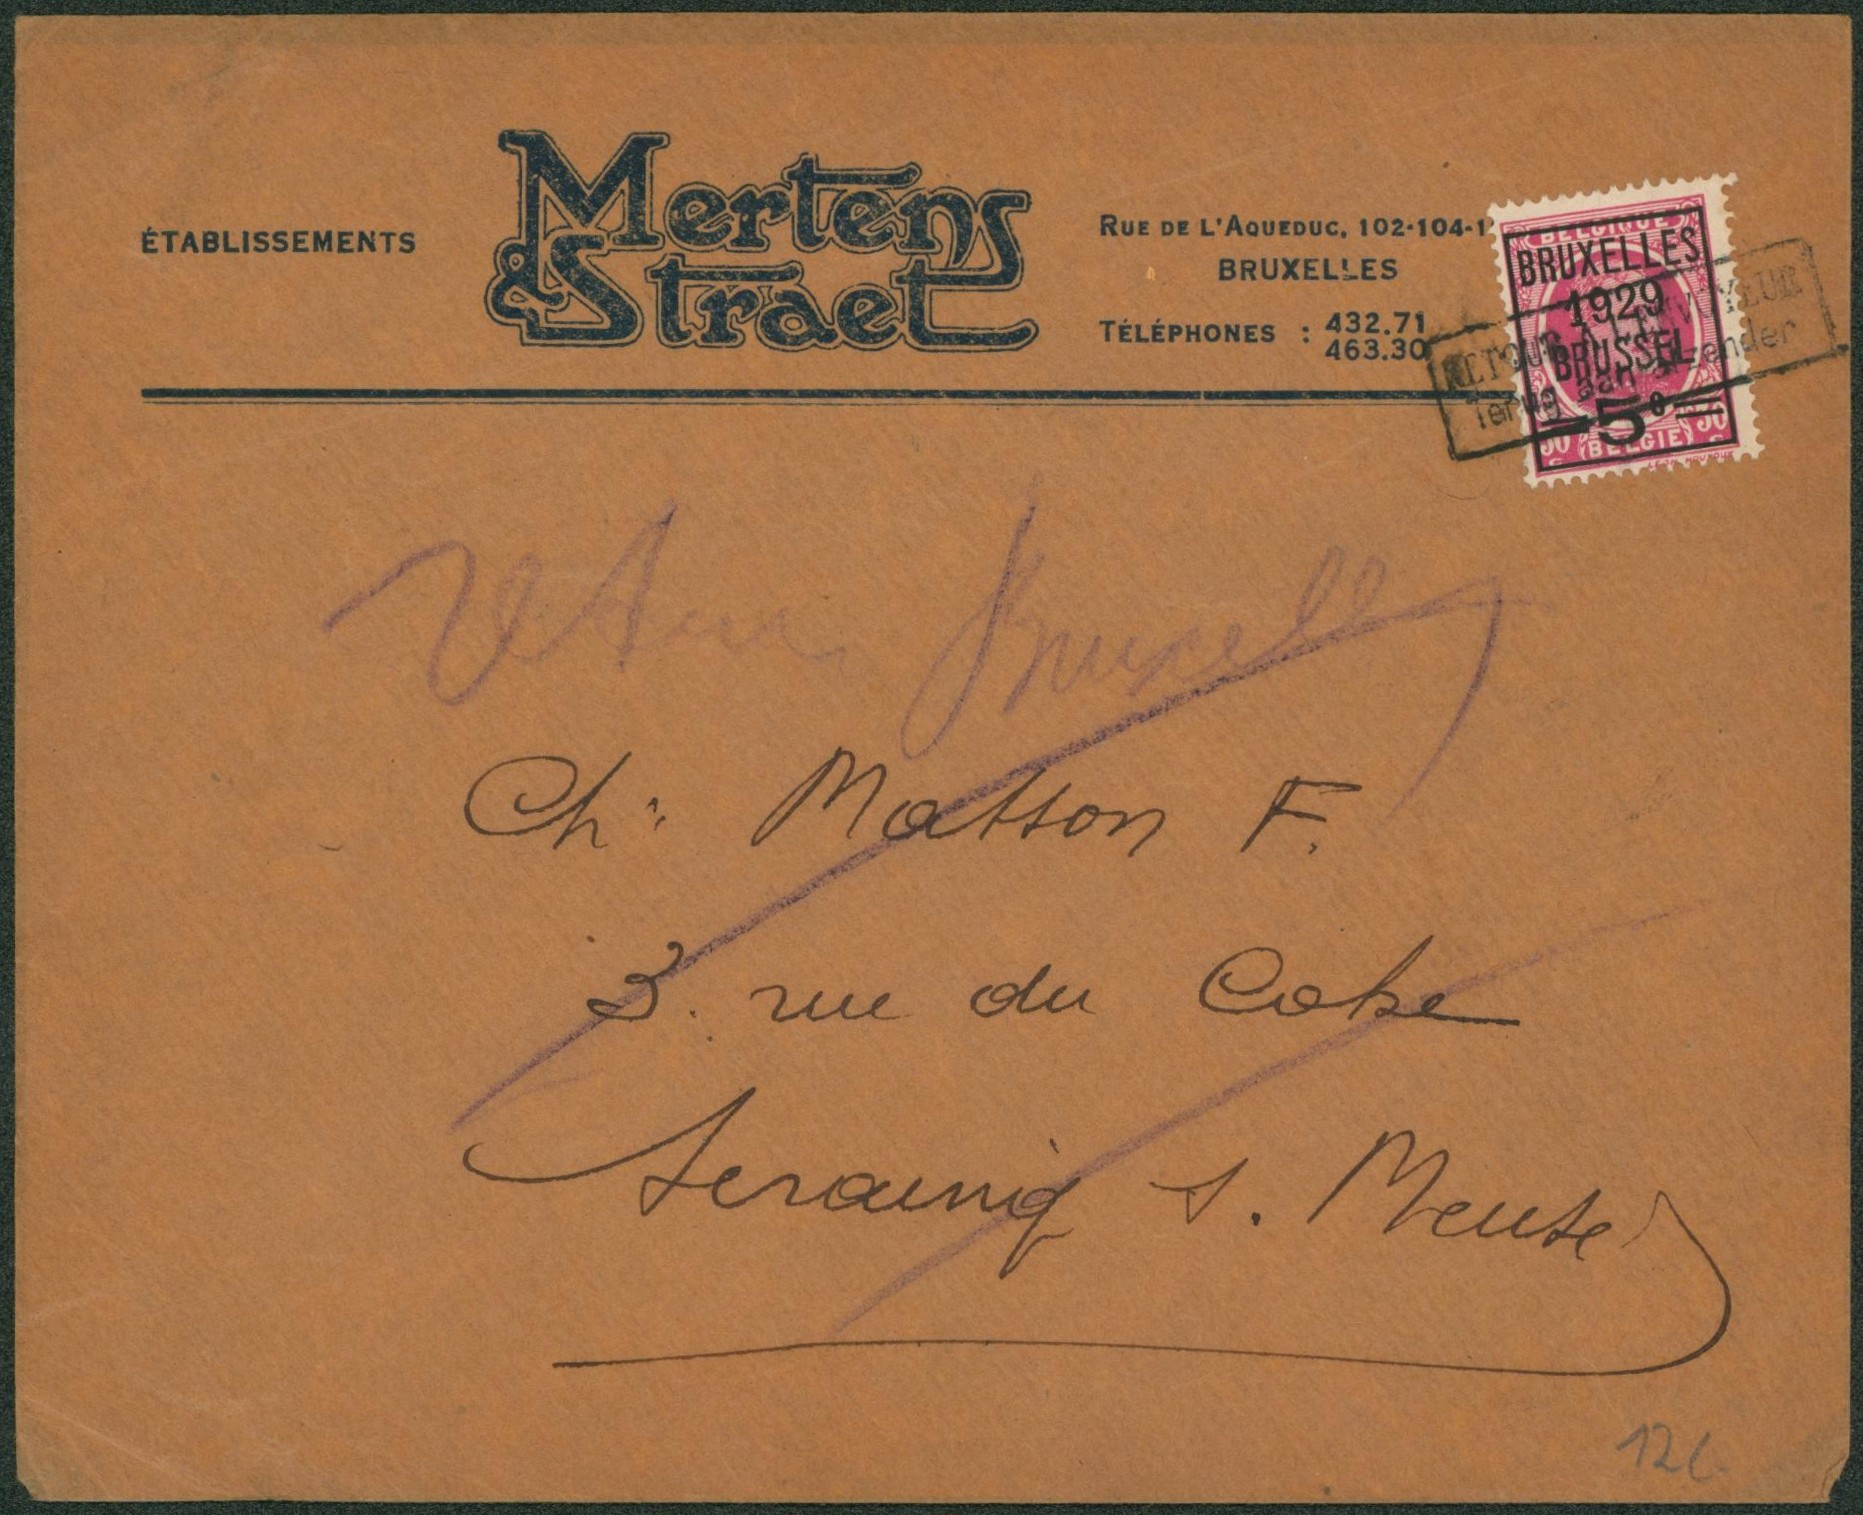 ÉTABLISSEMENTS
Mertens
& Straet
RUE DE L'AQUEDUC, 102-104-1
BRUXELLES
TÉLÉPHONES : 432.71
463.30
BELGIQUE
BRUXELLES
1929
BRUSSEL
5c
30 BELGIË 30
RETOUR A L'ENVOYEUR
Terug aan afzender
Bruxelles
Ch. Matson F.
3. rue du Coke
Seraing s. Meuse